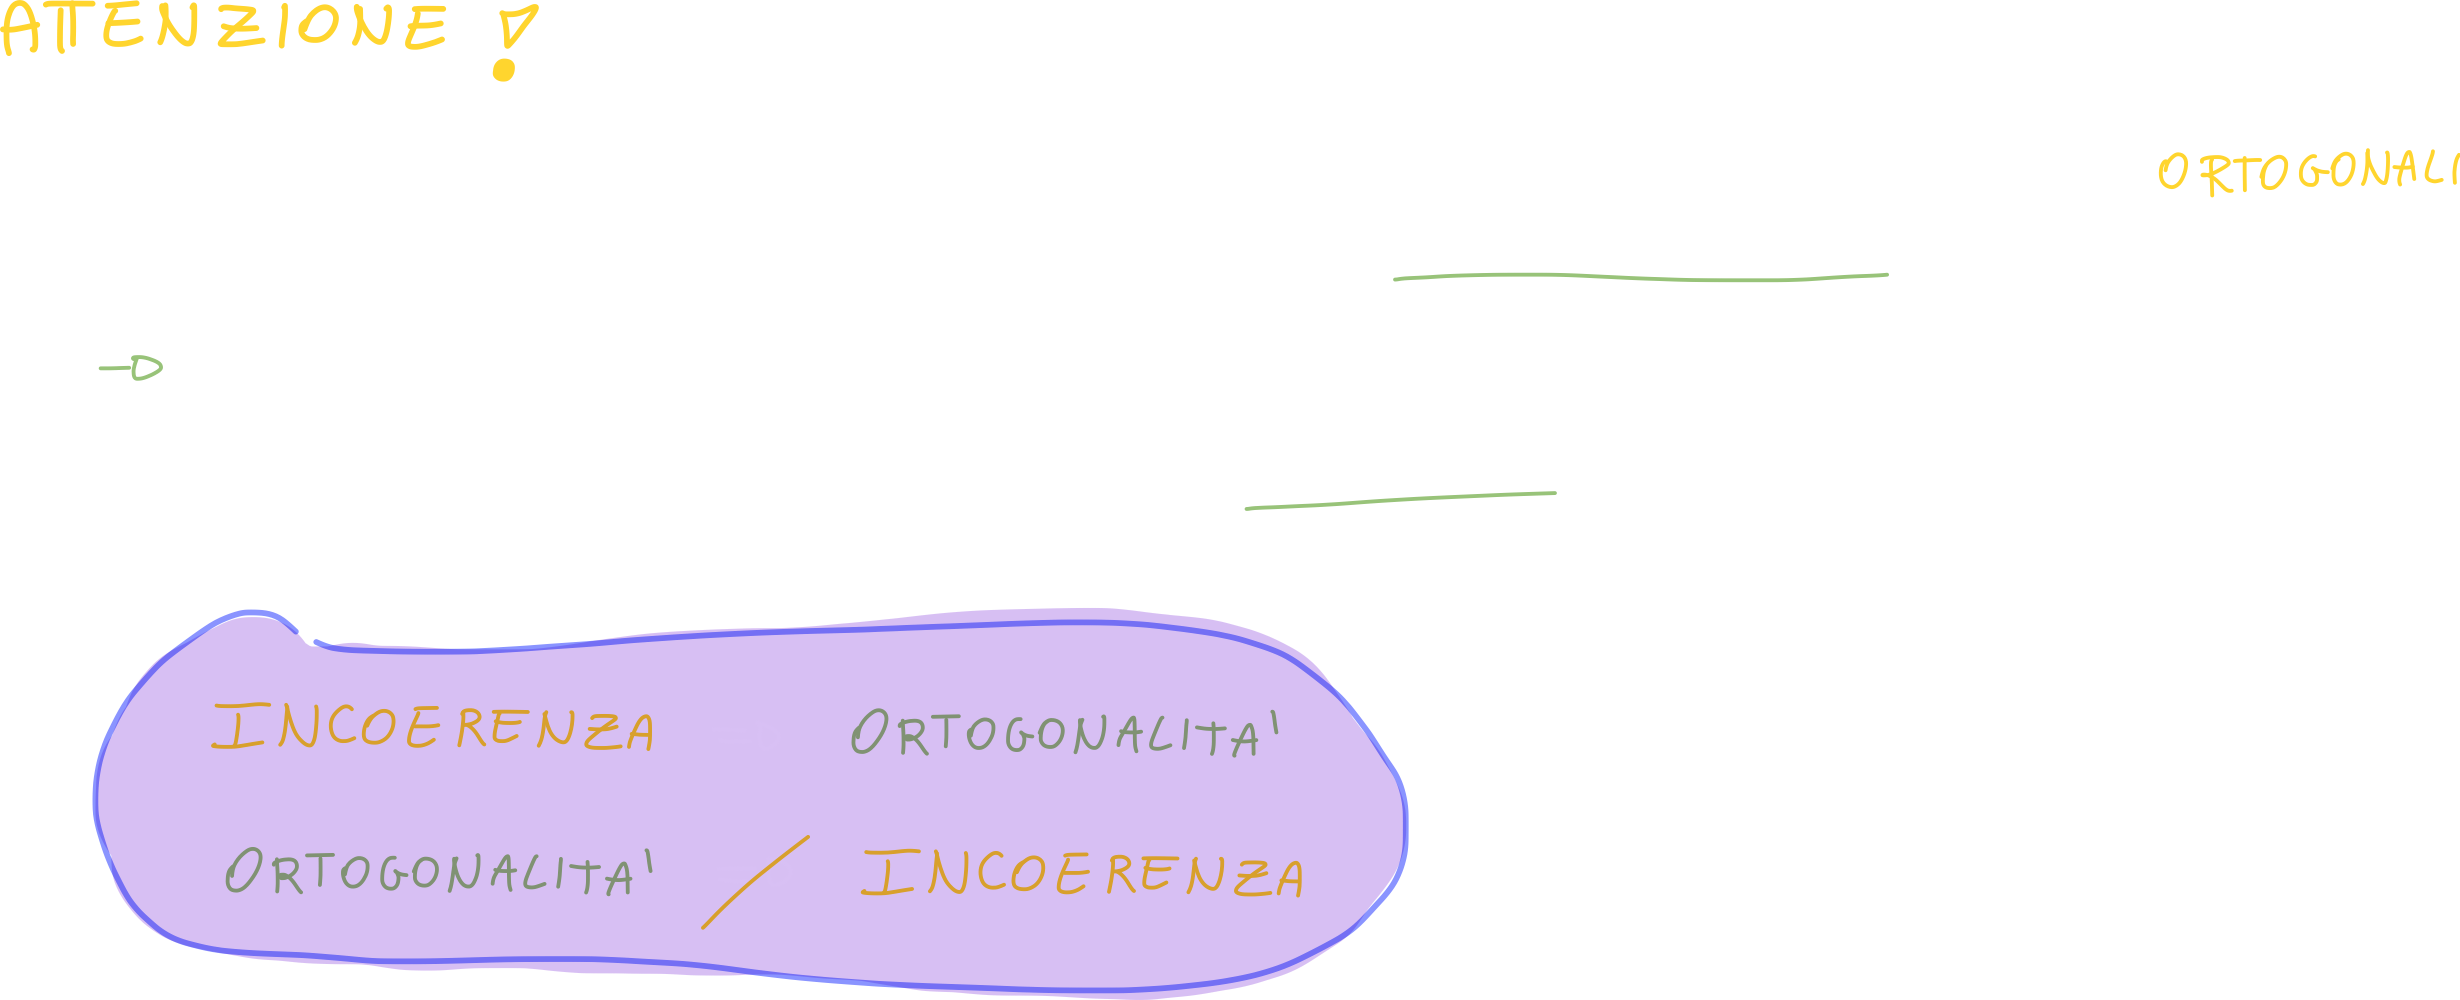 ATTENZIONE!
ORTOGONALI
INCOERENZA ORTOGONALITA'
ORTOGONALITA' INCOERENZA